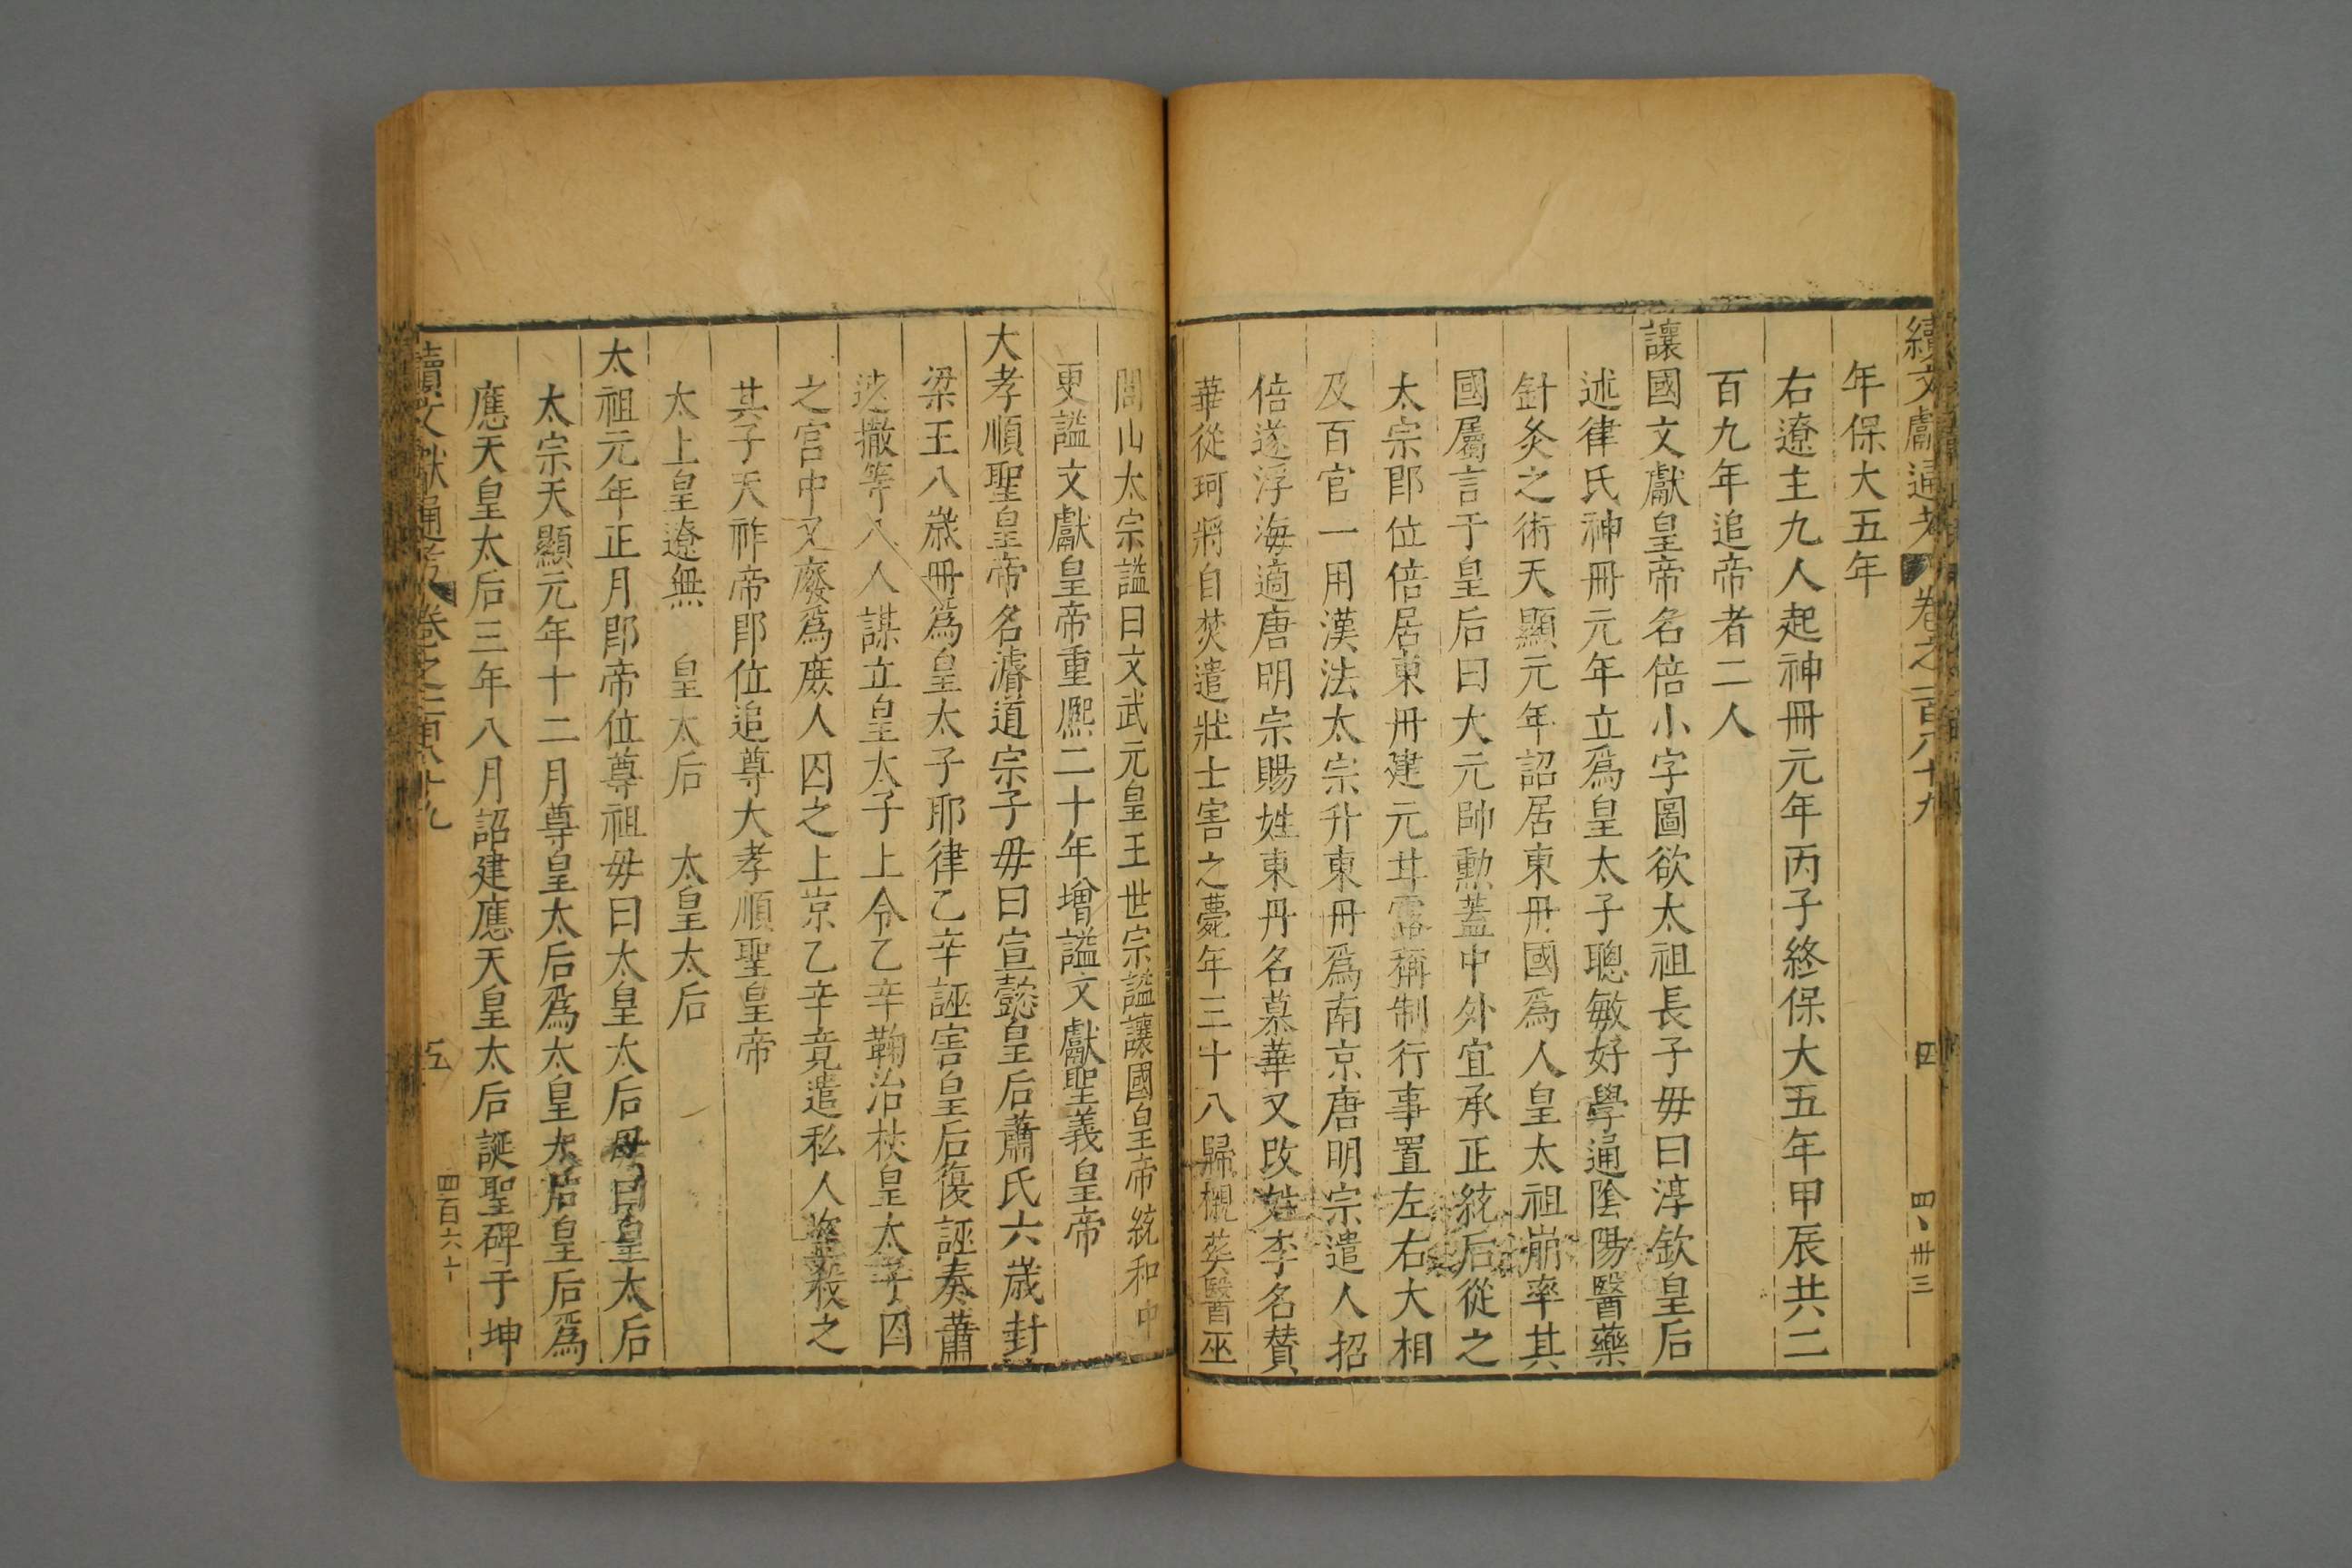 續文獻通考 卷之一百八十九 四 四、卅三
年保大五年
右遼主九人起神冊元年丙子終保大五年甲辰共二
百九年追帝者二人
讓國文獻皇帝名倍小字圖欲太祖長子毋曰淳欽皇后
述律氏神冊元年立爲皇太子聰敏好學通陰陽醫藥
針灸之術天顯元年詔居東冊國爲人皇太祖崩率其
國屬言于皇后曰大元帥勲蓋中外宜承正統后從之
太宗即位倍居東冊建元甘露稱制行事置左右大相
及百官一用漢法太宗升東冊爲南京唐明宗遣人招
倍遂浮海適唐明宗賜姓東丹名慕華又改姓李名賛
華從珂將自焚遣壯士害之薨年三十八歸櫬葬醫巫
閭山太宗謚曰文武元皇王世宗謚讓國皇帝統和中
更謚文獻皇帝重熈二十年增謚文獻聖義皇帝
大孝順聖皇帝名濬道宗子毋曰宣懿皇后蕭氏六歲封
梁王八歲冊爲皇太子耶律乙辛誣害皇后復誣奏蕭
速撒等八人謀立皇太子上令乙辛鞫治杖皇太子囚
之宮中又廢爲庻人囚之上京乙辛竟遣私人盜殺之
其子天祚帝即位追尊大孝順聖皇帝
太上皇遼無 皇太后 太皇太后
太祖元年正月即帝位尊祖毋曰太皇太后毋曰皇太后
太宗天顯元年十二月尊皇太后爲太皇太后皇后爲
應天皇太后三年八月詔建應天皇太后誕聖碑于坤
續文獻通考 卷之一百八十九 五 四百六十